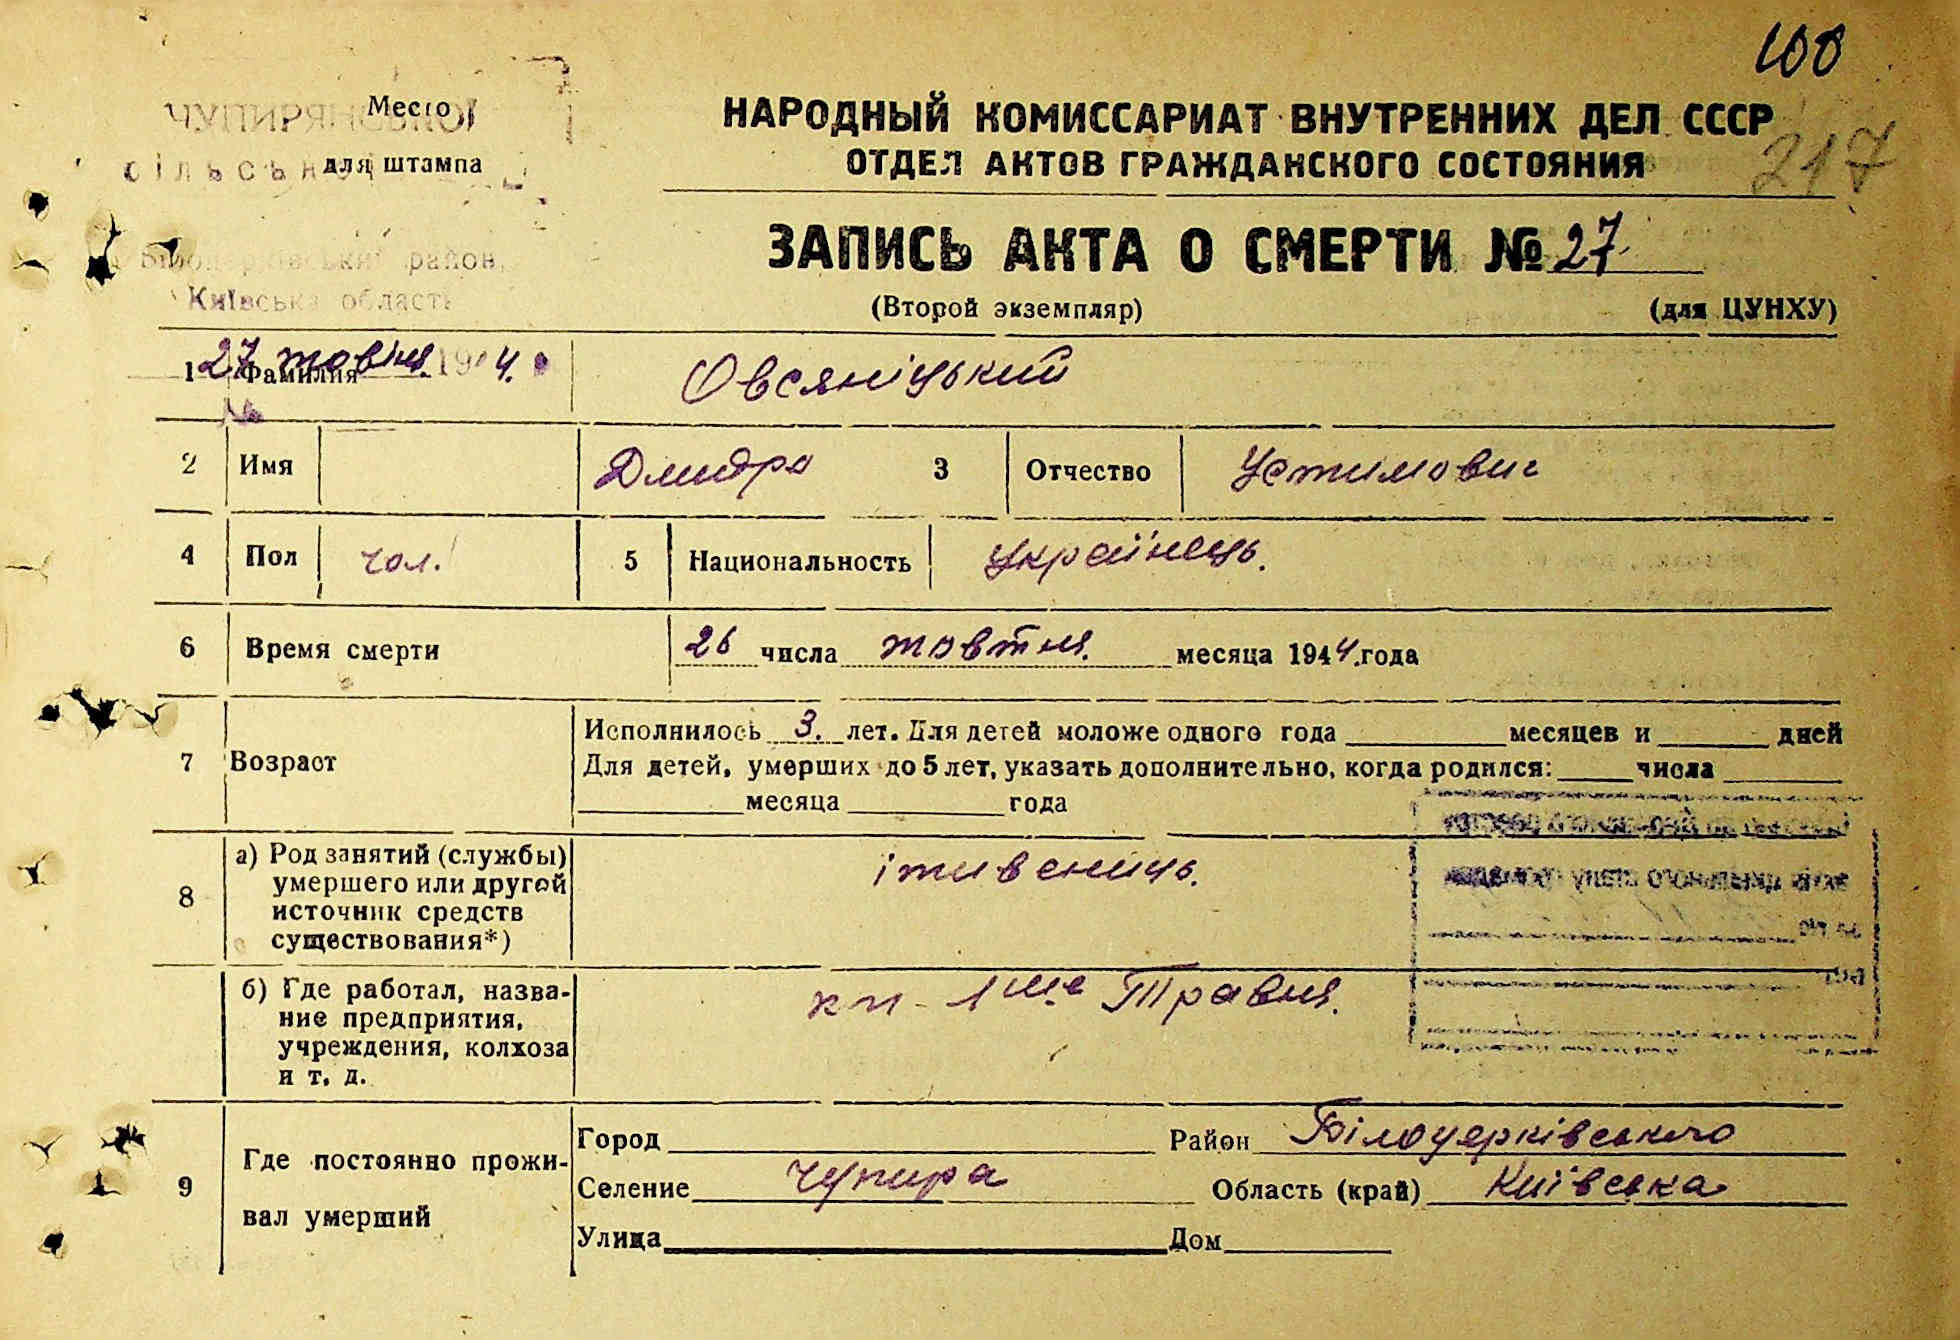 100
217
Место
для штампа
ЧУПИРЯНСЬКОЇ
сільської
Білоцерківський район,
Київська область
27 жовтня 1944.
НАРОДНЫЙ КОМИССАРИАТ ВНУТРЕННИХ ДЕЛ СССР
ОТДЕЛ АКТОВ ГРАЖДАНСКОГО СОСТОЯНИЯ
ЗАПИСЬ АКТА О СМЕРТИ № 27
(Второй экземпляр) (для ЦУНХУ)
1 Фамилия Овсяніцький
2 Имя Дмидро 3 Отчество Устимович
4 Пол чол. 5 Национальность українець.
6 Время смерти 26 числа жовтня. месяца 1944.года
7 Возраст Исполнилось 3. лет. Для детей моложе одного года месяцев и дней
Для детей, умерших до 5 лет, указать дополнительно, когда родился: числа
месяца года
8 а) Род занятий (службы)
умершего или другой
источник средств
существования*)
ітивениць.
б) Где работал, назва-
ние предприятия,
учреждения, колхоза
и т. д.
кп - 1ше Травня.
9 Где постоянно прожи-
вал умерший
Город Район Білоцерківського
Селение Чупира Область (край) Київська
Улица Дом